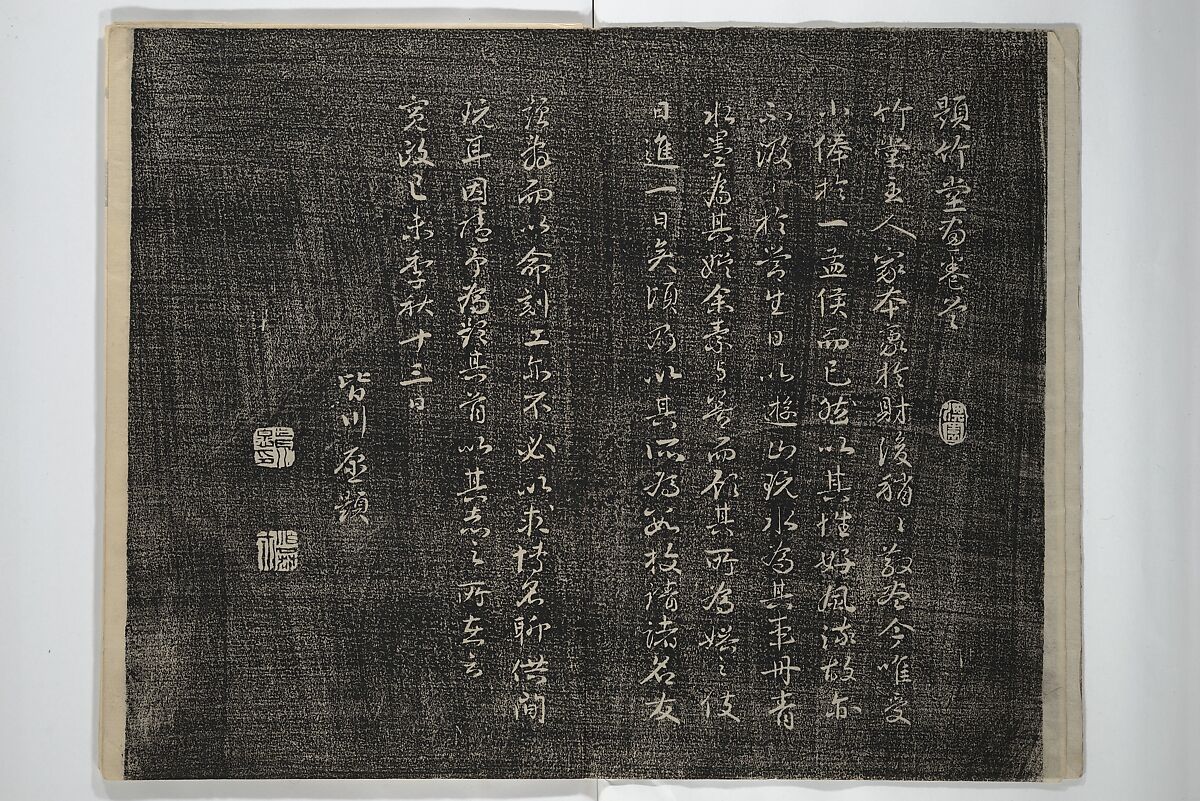 題竹堂畫卷首
竹堂主人家本裕於財後稍々散盡今唯受
小俸於一孟侯而已然以其性好風流故亦
不汲々於營生日以遊山玩水為其事丹青
水墨為其娛余素与善而顧其所為娛之伎
日進一日矣頃乃以其所為數枚請諸名友
題為而以命刻工亦不必以求博名聊供閒
玩耳因請予為題其首以其志之所在云
寛政己未季秋十三日
皆川愿題